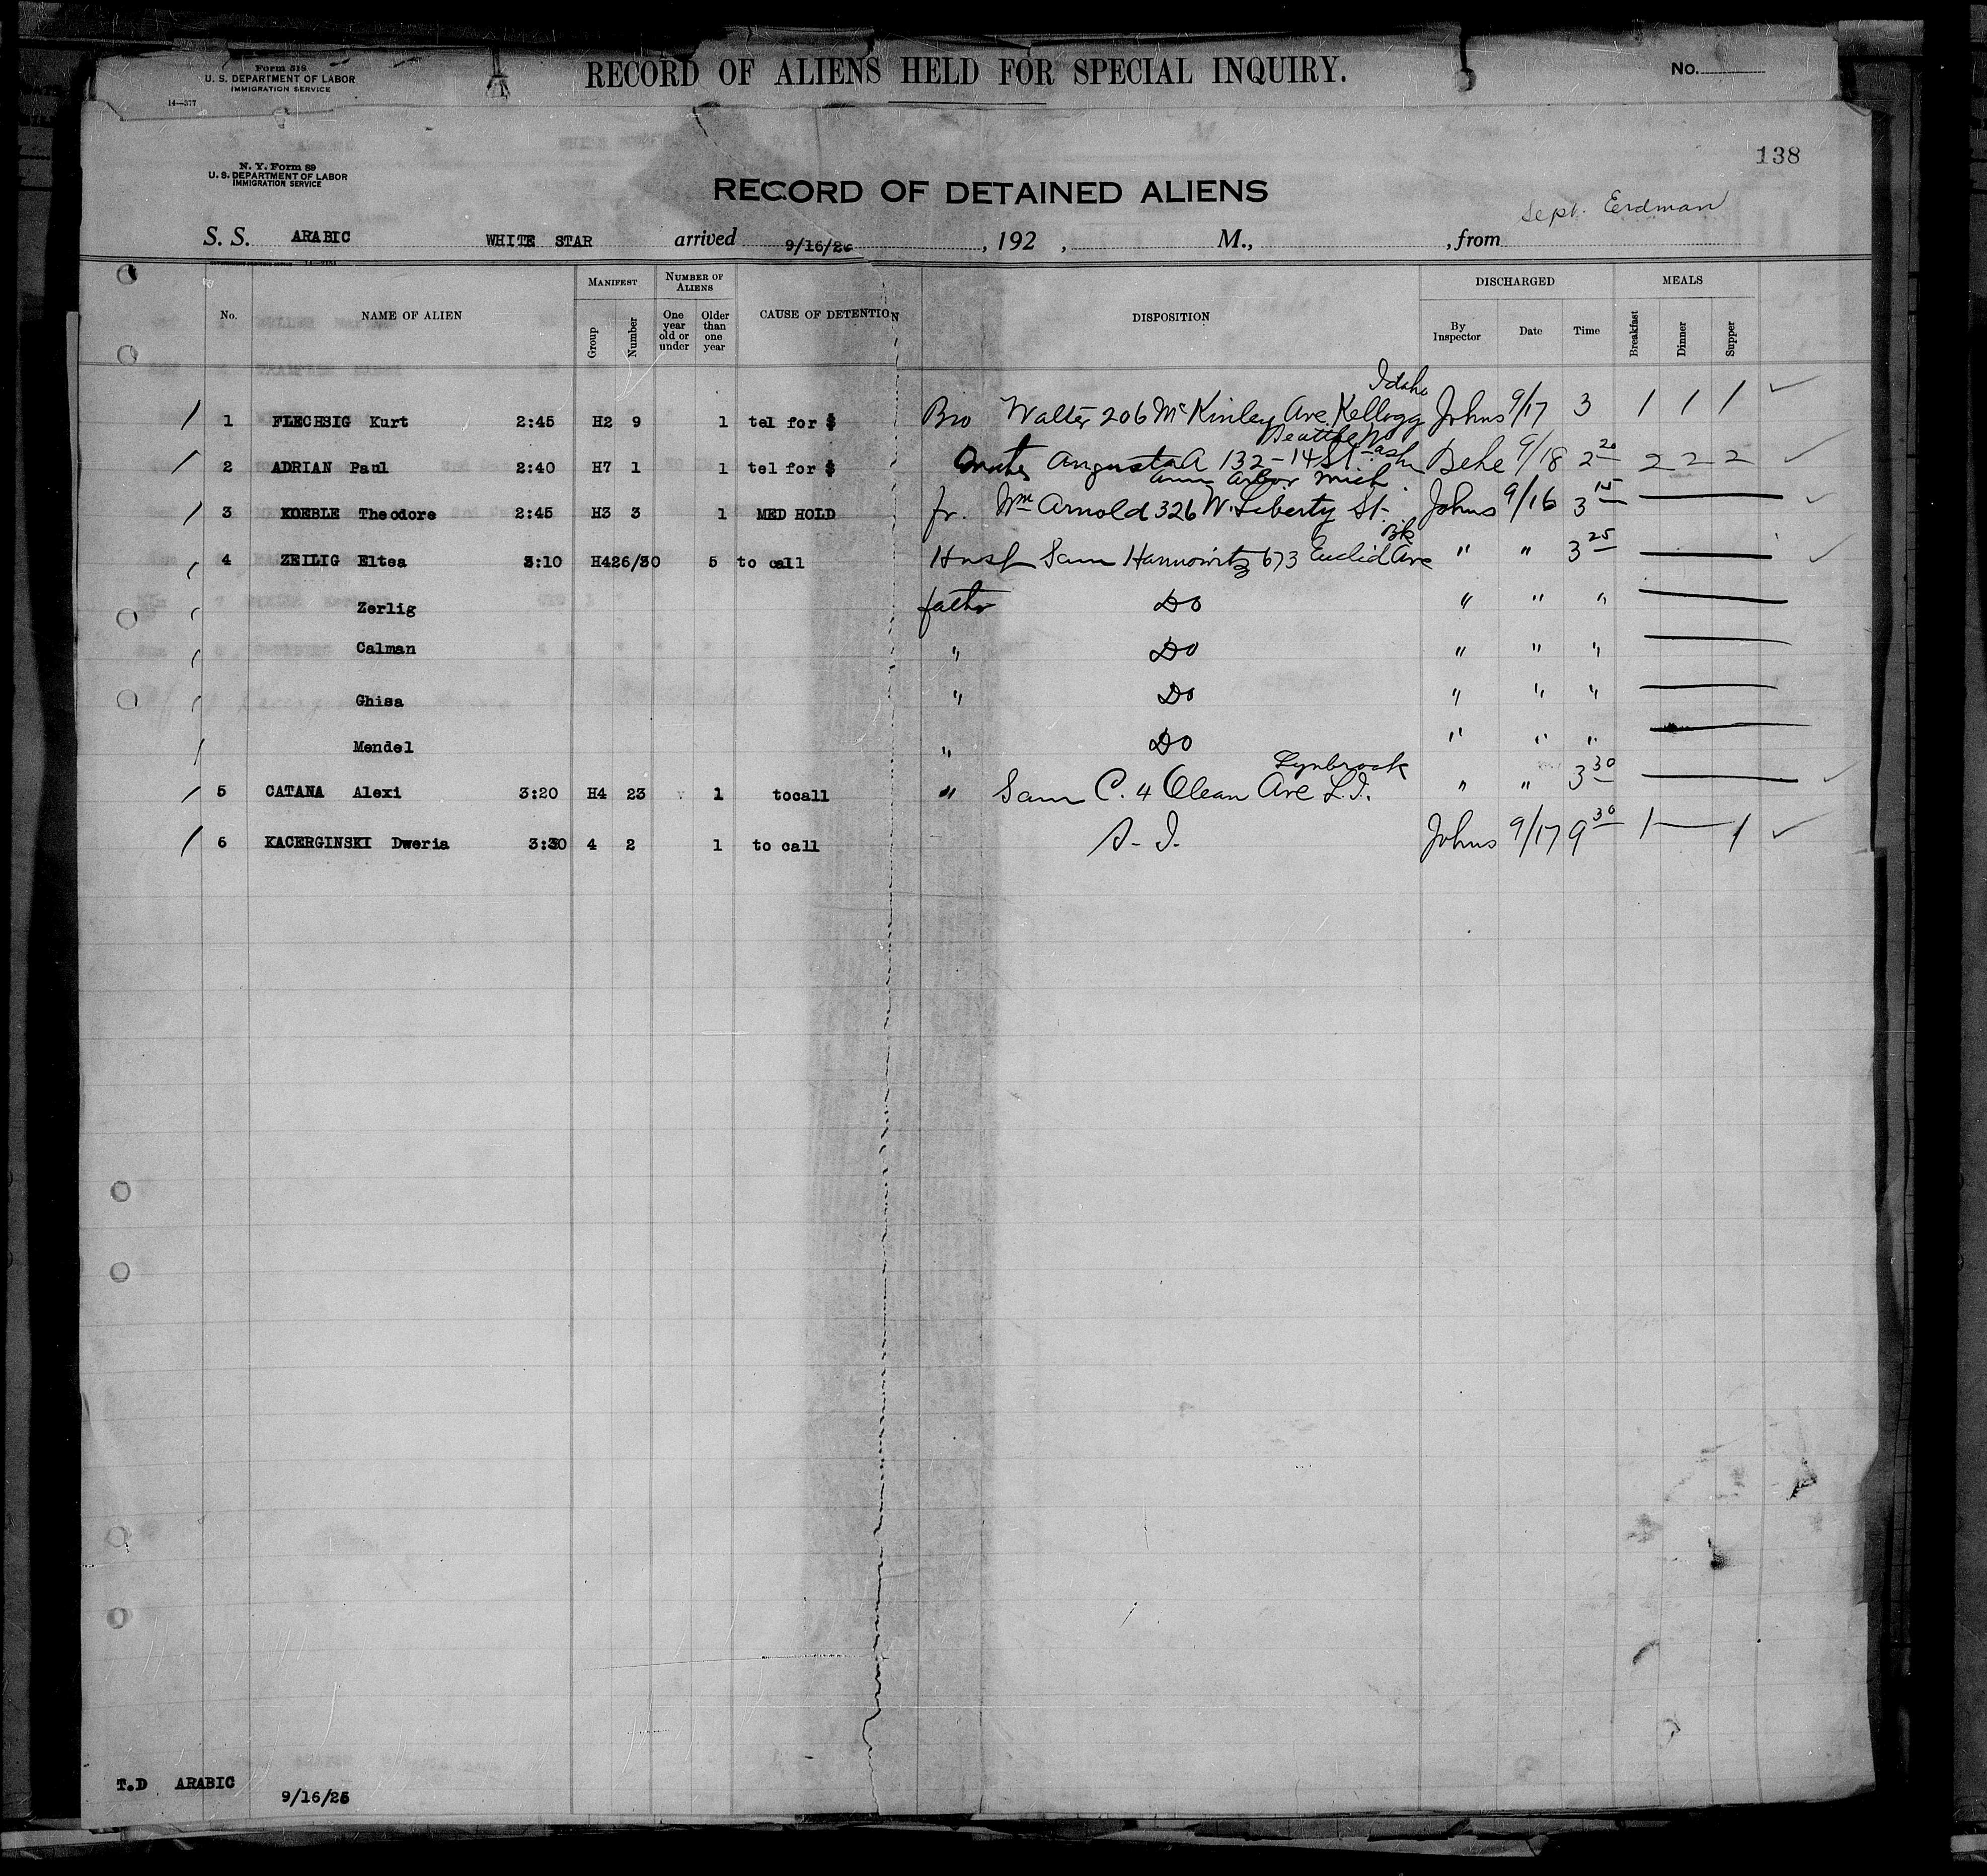 Form 518
U. S. DEPARTMENT OF LABOR
IMMIGRATION SERVICE
14—377
RECORD OF ALIENS HELD FOR SPECIAL INQUIRY.
No.
138
N. Y. Form 89
U. S. DEPARTMENT OF LABOR
IMMIGRATION SERVICE
RECORD OF DETAINED ALIENS
Sept. Erdman
S. S. ARABIC WHITE STAR arrived 9/16/26, 192 , M., , from
No. NAME OF ALIEN MANIFEST Group Number NUMBER OF ALIENS One year old or under Older than one year CAUSE OF DETENTION DISPOSITION DISCHARGED By Inspector Date Time MEALS Breakfast Dinner Supper
Idaho
/ 1 FLECHSIG Kurt 2:45 H2 9 1 tel for $ Bro Walter 206 McKinley Ave. Kellogg Johns 9/17 3 1 1 1 ✓
Seattle Wash
/ 2 ADRIAN Paul 2:40 H7 1 1 tel for $ Augusta A 132-14 St. Behe 9/18 2 20 2 2 2 ✓
Ann Arbor Mich
/ 3 KOEBLE Theodore 2:45 H3 3 1 MED HOLD fr. Wm Arnold 326 W. Liberty St. Johns 9/16 3 15 — ✓
Bk
/ 4 ZEILIG Eltea 3:10 H4 26/30 5 to call Husb Sam Hannowitz 673 Euclid Ave " " 3 25 — ✓
/ Zerlig father Do " " " —
/ Calman " Do " " " —
/ Ghisa " Do " " " —
/ Mendel " Do " " " —
Lynbrook
/ 5 CATANA Alexi 3:20 H4 23 1 tocall " Sam C. 4 Olean Ave L.I. " " 3 30 — ✓
/ 6 KACERGINSKI Dweria 3:30 4 2 1 to call S. I. Johns 9/17 9 30 1 — 1 ✓
T.D ARABIC
9/16/26